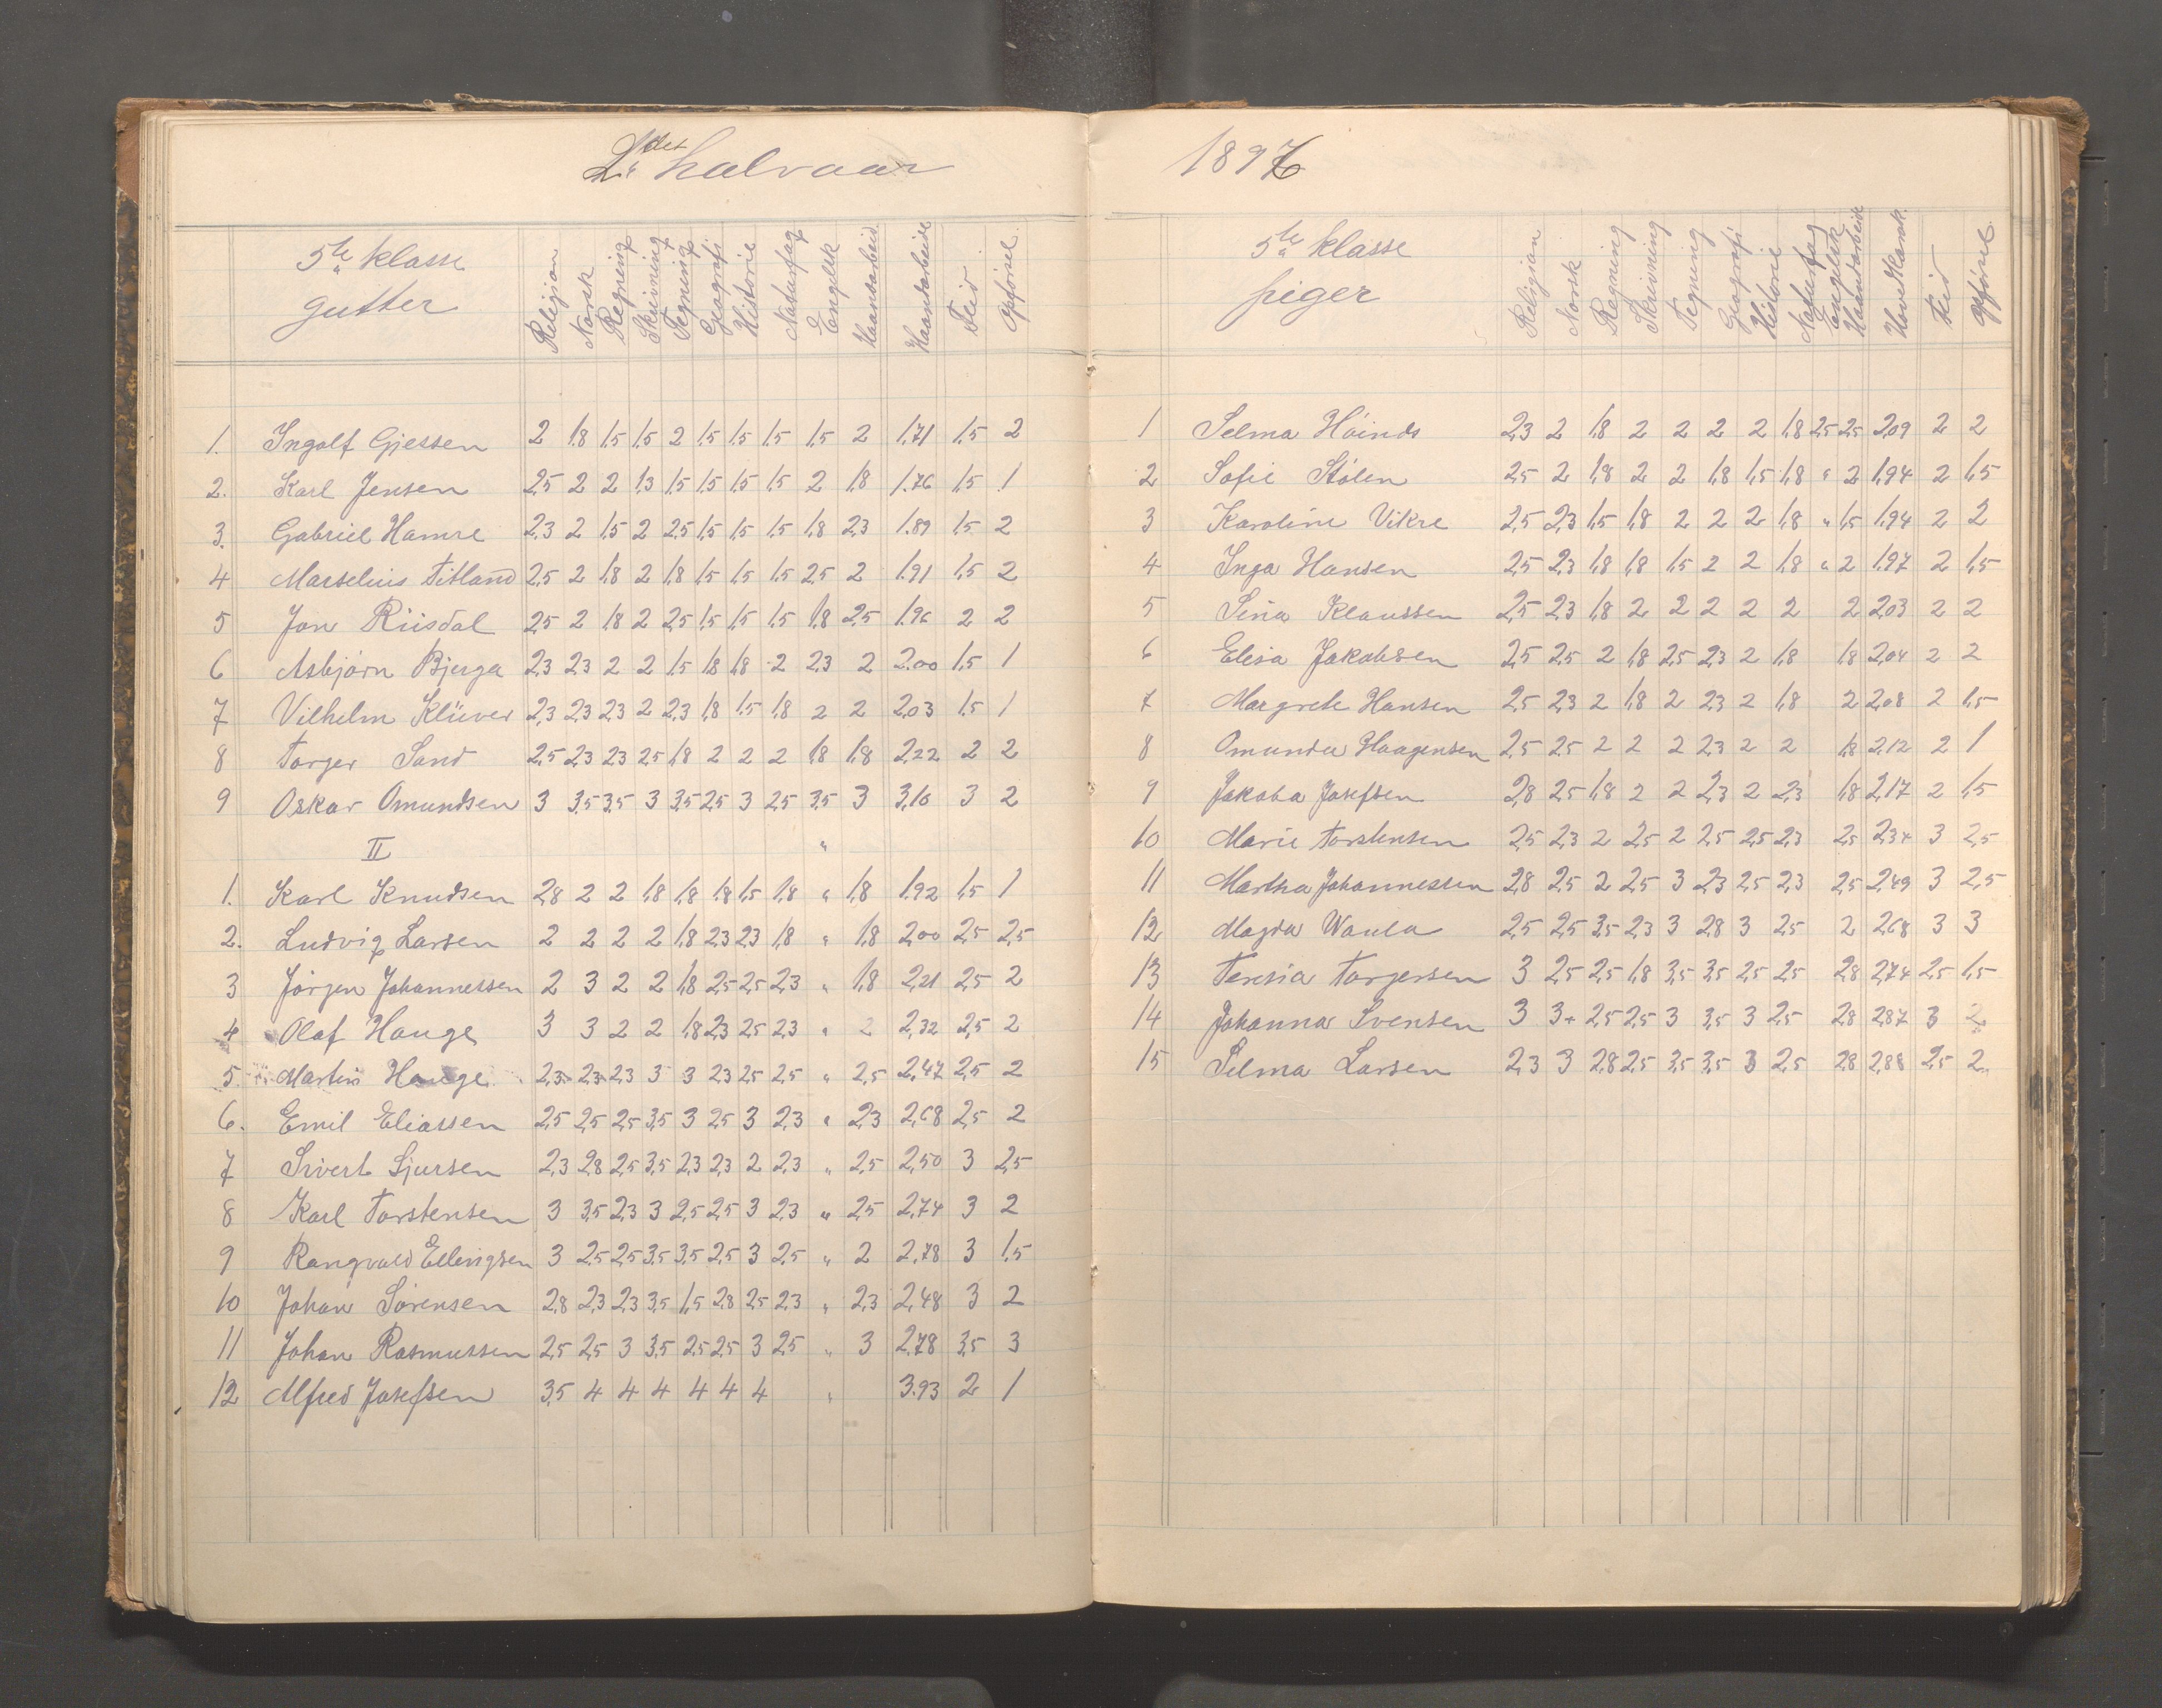 2det halvaar
5te klasse
gutter
Religion Norsk Regning Skrivning Tegning Geografi Historie Naturfag Engelsk Haandarbeid Haandarbeide Flid Opførsel
1. Ingolf Gjessen 2 1,8 1,5 1,5 2 1,5 1,5 1,5 1,5 2 1.71 1,5 2
2. Karl Jensen 2,5 2 2 1,3 1,5 1,5 1,5 1,5 2 1,8 1.76 1,5 1
3. Gabriel Hamre 2,3 2 1,5 2 2,5 1,5 1,5 1,5 1,8 2,3 1.89 1,5 2
4 Marselius Titland 2,5 2 1,8 2 1,8 1,5 1,5 1,5 2,5 2 1.91 1,5 2
5 Jon Riisdal 2,5 2 1,8 2 2,5 1,5 1,5 1,5 1,8 2,5 1.96 2 2
6 Asbjørn Bjerga 2,3 2,3 2 2 1,5 1,8 1,8 2 2,3 2 2.00 1,5 1
7 Vilhelm Klüver 2,3 2,3 2,3 2 2,3 1,8 1,5 1,8 2 2 2,03 1,5 1
8 Torger Sand 2,5 2,3 2,3 2,5 1,8 2 2 2 1,8 1,8 2,22 2 2
9 Oskar Omundsen 3 3,5 3,5 3 3,5 2,5 3 2,5 3,5 3 3,10 3 2
II "
1. Karl Knudsen 2,8 2 2 1,8 1,8 1,8 1,5 1,8 " 1,8 1.92 1,5 1
2. Ludvig Larsen 2 2 2 2 1,8 2,3 2,3 1,8 " 1,8 2,00 2,5 2,5
3 Jørgen Johannessen 2 3 2 2 1,8 2,5 2,5 2,3 " 1,8 2,21 2,5 2
4 Olaf Hauge 3 3 2 2 1,8 2,3 2,5 2,3 " 2 2,32 2,5 2
5. Martin Hauge 2,3 2,3 2,3 3 3 2,3 2,5 2,5 " 2,5 2,47 2,5 2
6. Emil Eliassen 2,5 2,5 2,5 3,5 3 2,5 3 2,3 " 2,3 2,68 2,5 2
7 Sivert Sjursen 2,3 2,8 2,5 3,5 2,3 2,3 2 2,3 " 2,5 2,50 3 2,5
8 Karl Torstensen 3 3,5 2,3 3 2,5 2,5 3 2,3 " 2,5 2,74 3 2
9 Rangvald Ellingsen 3 2,5 2,5 3,5 3,5 2,5 3 2,5 " 2 2,78 3 1,5
10 Johan Sørensen 2,8 2,3 2,3 3,5 1,5 2,8 2,5 2,3 " 2,3 2,48 3 2
11 Johan Rasmussen 2,5 2,5 3 3,5 2,5 2,5 3 2,5 " 3 2,78 3,5 3
12 Alfred Josefsen 3,5 4 4 4 4 4 4 " 3.93 2 1
1896
5te klasse
piger
Religion Norsk Regning Skrivning Tegning Geografi Historie Naturfag Engelsk Haandarbeide Hovedkarak. Flid Opførsel
1 Selma Høinds 2,3 2 1,8 2 2 2 2 1,8 2,5 2,5 2,09 2 2
2 Sofie Stølen 2,5 2 1,8 2 2 1,8 1,5 1,8 " 2 1,94 2 1,5
3 Karoline Vikre 2,5 2,3 1,5 1,8 2 2 2 1,8 " 1,5 1,94 2 2
4 Inga Hansen 2,5 2,3 1,8 1,8 1,5 2 2 1,8 " 2 1,97 2 1,5
5 Sina Klaussen 2,5 2,3 1,8 2 2 2 2 2 2 2,03 2 2
6 Elisa Jakobsen 2,5 2,5 2 1,8 2,5 2,3 2 1,8 1,8 2,04 2 2
7 Margrete Hansen 2,5 2,3 2 1,8 2 2,3 2 1,8 2 2,08 2 1,5
8 Omunda Haagensen 2,5 2,5 2 2 2 2,3 2 2 1,8 2,12 2 1
9 Jakoba Josefsen 2,8 2,5 1,8 2 2 2,3 2 2,3 1,8 2,17 2 1,5
10 Marie Torstensen 2,5 2,3 2 2,5 2 2,5 2,5 2,3 2,5 2,34 3 2,5
11 Martha Johannessen 2,8 2,5 2 2,5 3 2,3 2,5 2,3 2,5 2,49 3 2,5
12 Magda Waula 2,5 2,5 3,5 2,3 3 2,8 3 2,5 2 2,68 3 3
13 Teresia Torgersen 3 2,5 2,5 1,8 3,5 3,5 2,5 2,5 2,8 2,74 2,5 1,5
14 Johanna Svensen 3 3+ 2,5 2,5 3 3,5 3 2,5 2,8 2,87 3 2
15 Selma Larsen 2,3 3 2,8 2,5 3,5 3,5 3 2,5 2,8 2,88 2,5 2